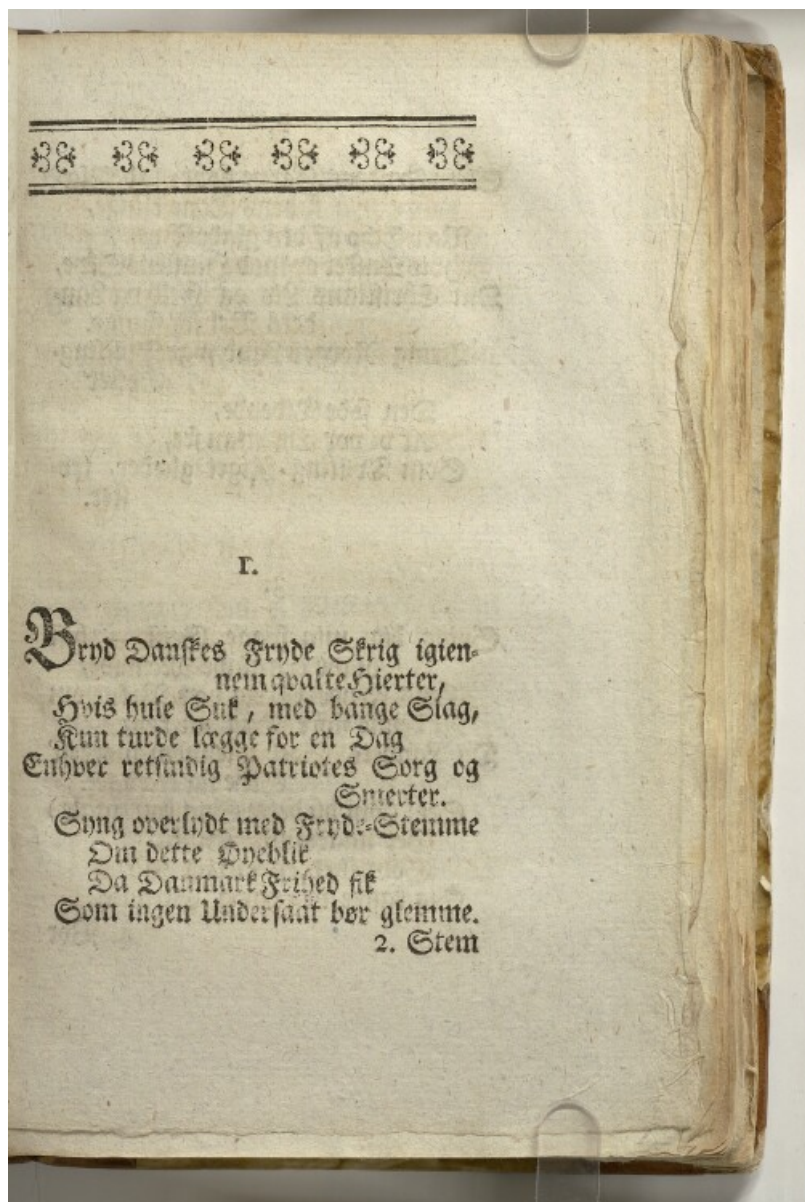 I.
Bryd Danskes Fryde Skrig igien-
nem qvalte Hierter,
Hvis hule Suk, med bange Slag,
Kun turde lægge for en Dag
Enhver retsindig Patriotes Sorg og
Smerter.
Syng overlydt med Fryde-Stemme
Om dette Øyeblik
Da Danmark Frihed fik
Som ingen Undersaat bør glemme.
2. Stem